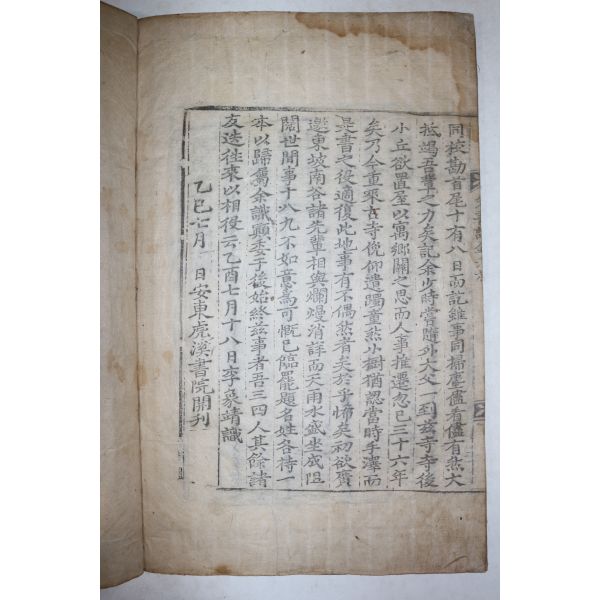 同挍勘首尾十有八日而訖雖事同掃塵儘看儘有然大
抵竭吾輩之力矣記余少時嘗隨外大父一到玆寺寺後
小丘欲置屋以寓鄕關之思而人事推遷忽已三十六年
矣乃今重來古寺俛仰遺躅童然小樹猶認當時手澤而
是書之役適復此地事有不偶然者矣於乎悕矣初欲賡
選東坡南谷諸先輩相與爛熳消詳而天雨水盛坐成阻
闊世間事十八九不如意焉可慨已臨罷題名姓各持一
本以歸屬余識顚委于後始終玆事者吾三四人其餘諸
友迭往來以相役云乙酉七月十八日李象靖識
乙巳七月 日安東虎溪書院開刊